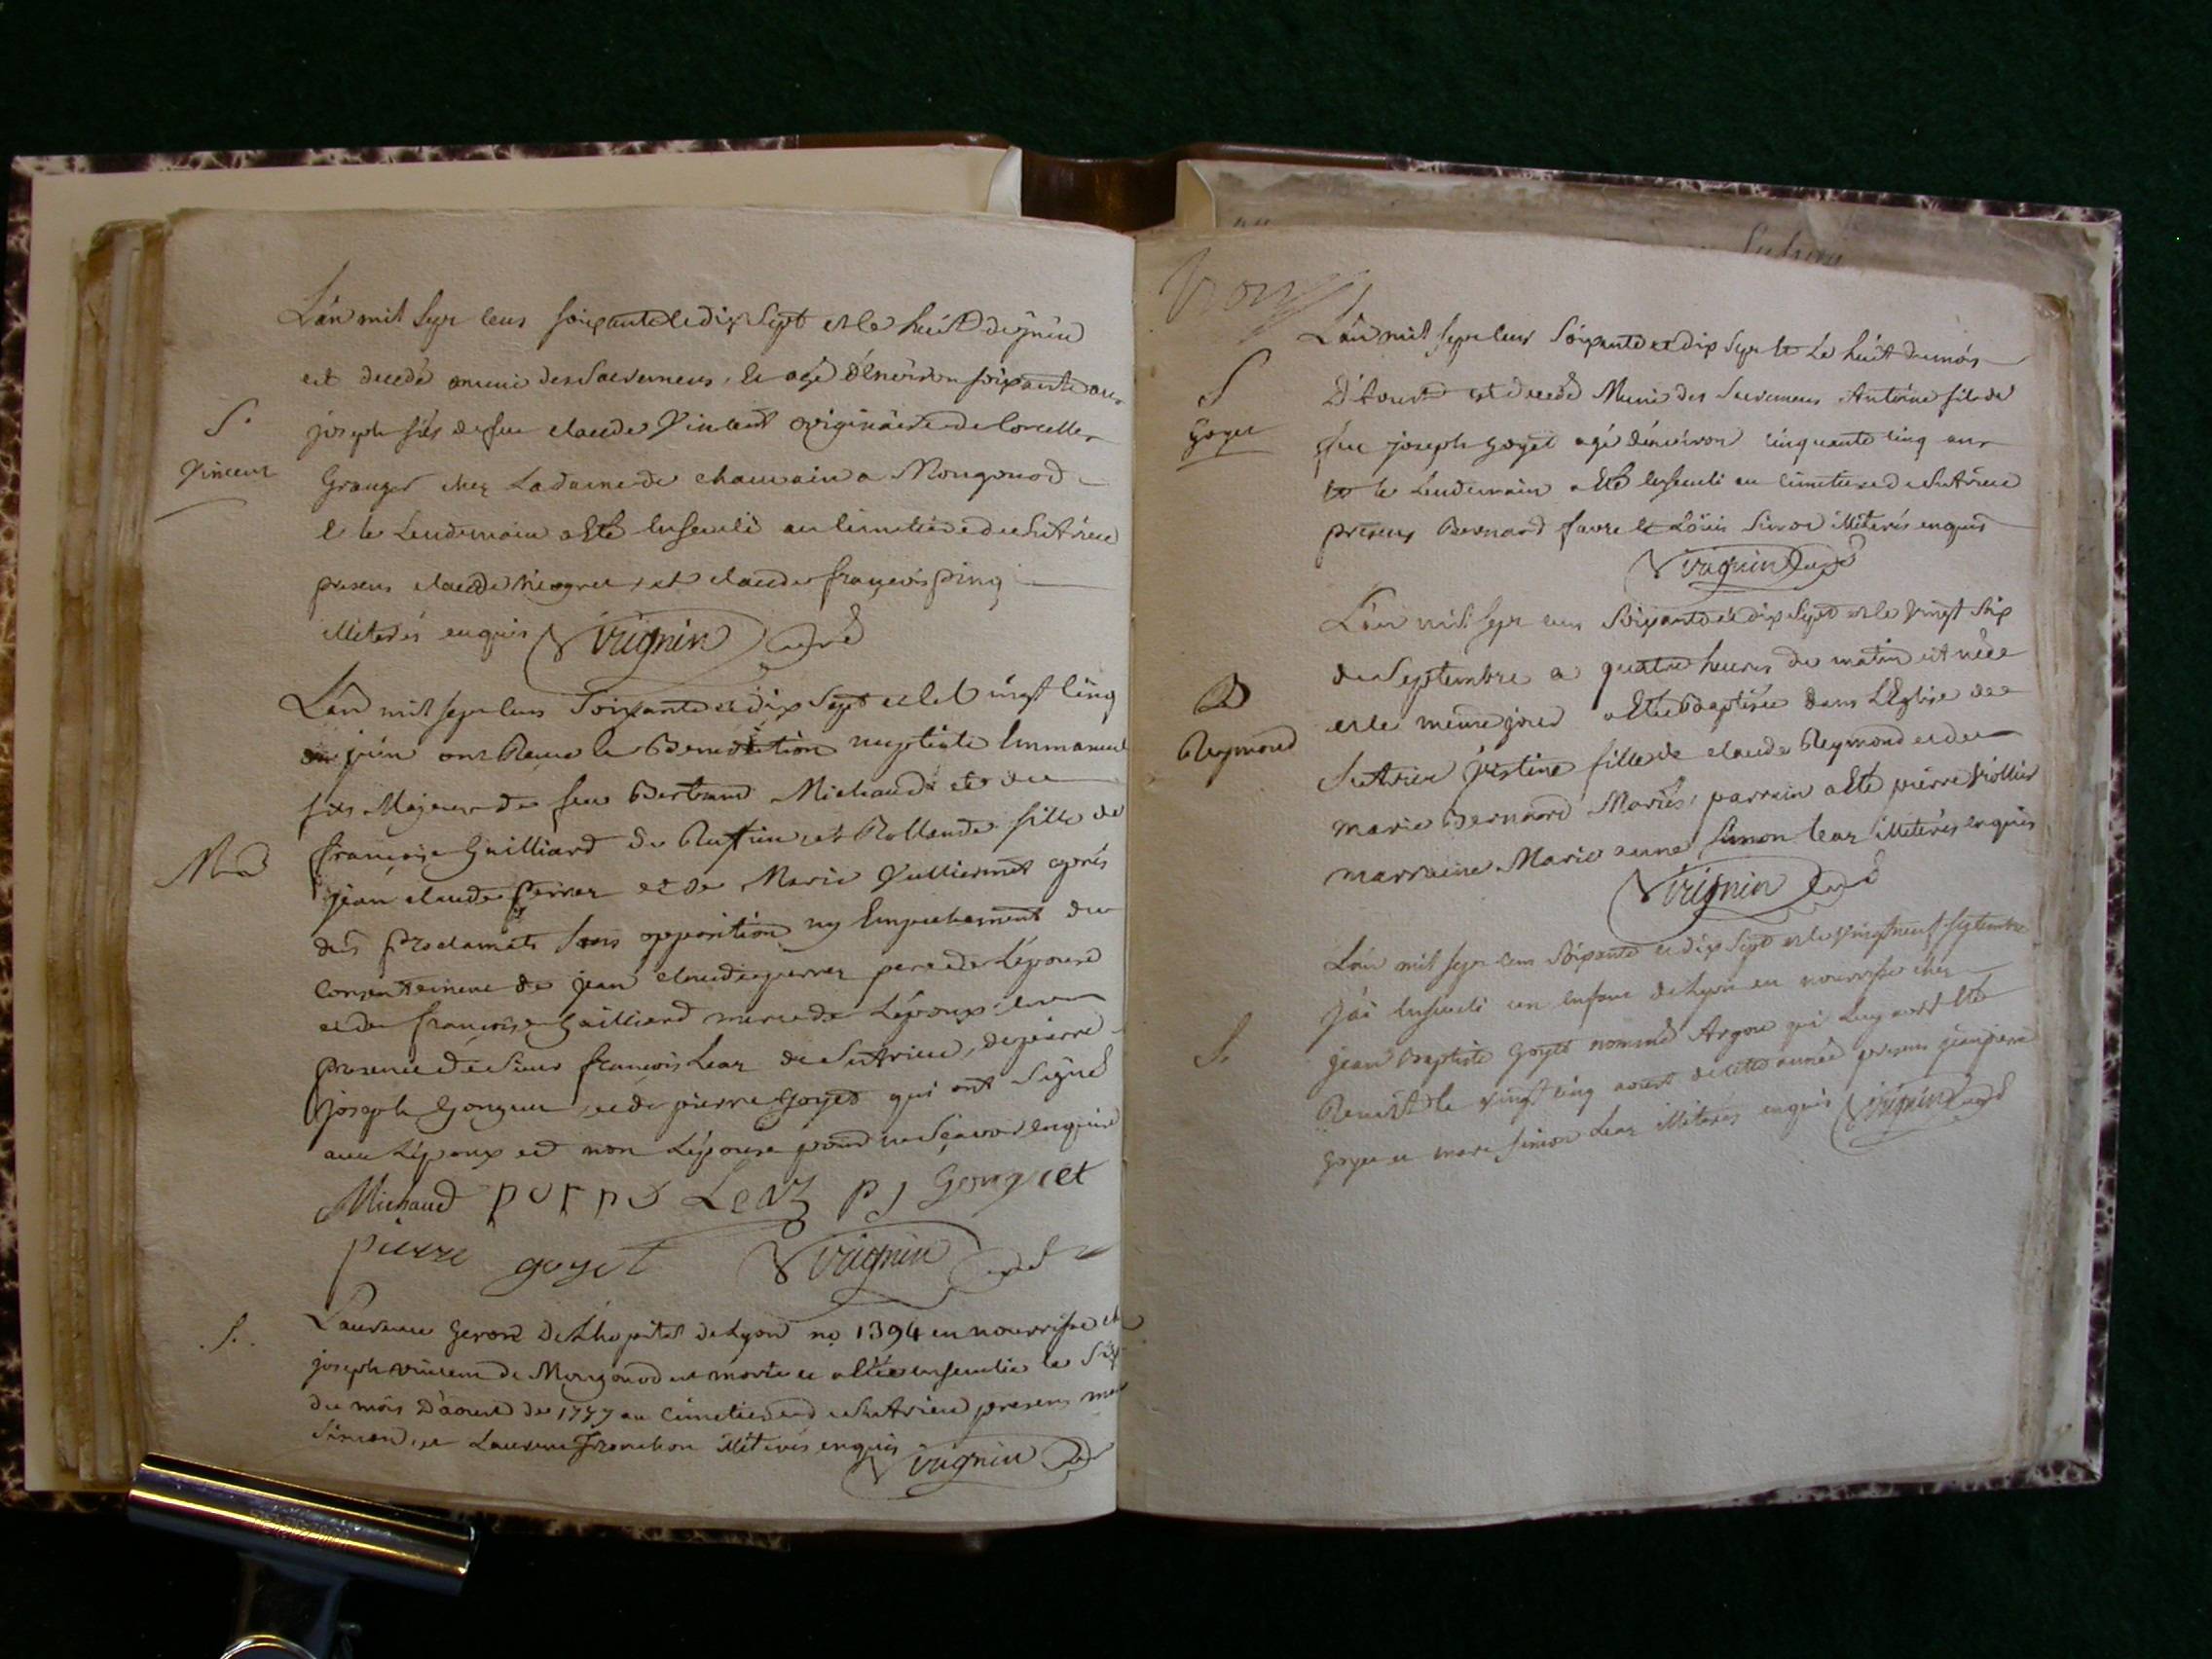 L'an mil sept cens soixante et dix sept et le huit de juin
est decedé muni des Sacremens, et agé d'environ soixante ans
S.
Vincent
joseph fils de feu claude Vincent originaire de Corcelles
Granger chez La dame de chauvain a Mongonod
e le Lendemain a Eté Enseveli au Cimetiere de Sutrieu
presens claude et claude françois
illiterés enquis Vuignin curé
L'an mil sept cens Soixante et dix Sept et le Vingt Cinq
juin ont Reçu la Benediction nuptiale Emmanuel
fils Majeur de feu Bertrand Michaud et de
françoise Guilliard de Ruffieu et Rollande fille de
MB
jean claude Perner et de Marie Vulliermet après
des Proclamats Sans opposition ny Empechement du
Consentement de jean claude perner pere de L'épouse
et de françoise Guilliard mere de L'époux en
presence de Sieur françois Lear de Sutrieu, de pierre
joseph Gonguet, et de pierre Goyet qui ont Signé
avec L'époux et non L'épouse pour ne Sçavoir enquise
Michaud perne Lear pj Gonguet
pierre goyet Vuignin curé
S.
Laurence Geron De L'hopital de Lyon no 1394 en nourrisse ch
joseph vincent de Mongonod est morte et a Eté ensevelie le Six
du mois D'aoust de 1777 au Cimetiere de Sutrieu presens
Simon, et Laurent Franchon illiterés enquis
Vuignin curé
L'an mil sept cens Soixante et dix Sept et Le huit du mois
S
Goyet
D'Aoust est decedé Muni des Sacremens Antoine fils de
feu joseph Goyet agé d'environ Cinquante Cinq ans
et le Lendemain a Eté Enseveli au Cimetiere de Sutrieu
presens Bernard favre et Loüis Simon illiterés enquis
Vuignin curé
L'an mil sept cens Soixante et dix Sept et le Vingt Six
de Septembre a quatre heures du matin est née
B
Reymond
et le meme jour a Eté Baptisée dans L'Eglise de
Sutrieu justine fille de claude Reymond et de
Marie Bernard Mariés, parrain a Eté pierre Viollier
marraine Marie anne Simon Lear illiterés enquis
Vuignin curé
L'an mil sept cens Soixante et dix Sept et le Vingt neuf Septembre
S.
j'ai Enseveli un Enfant de Lyon en nourrisse chez
jean Baptiste Goyet nommé Argou qui Luy avoit Eté
Remit le vingt cinq aoust de cette année presens jean pierre
Goyet et Simon Lear illiterés enquis Vuignin curé